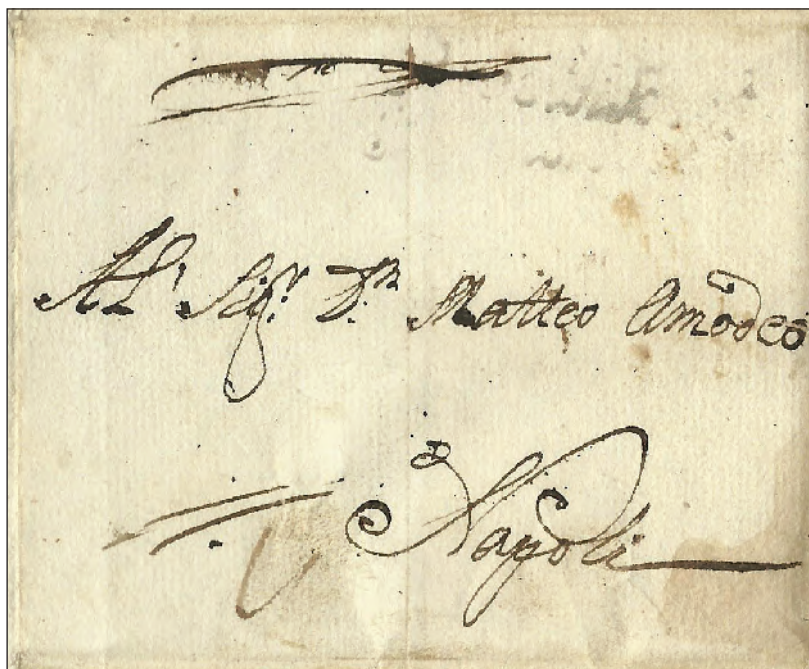 Al Sig.r D.n Matteo Amodeo
Napoli